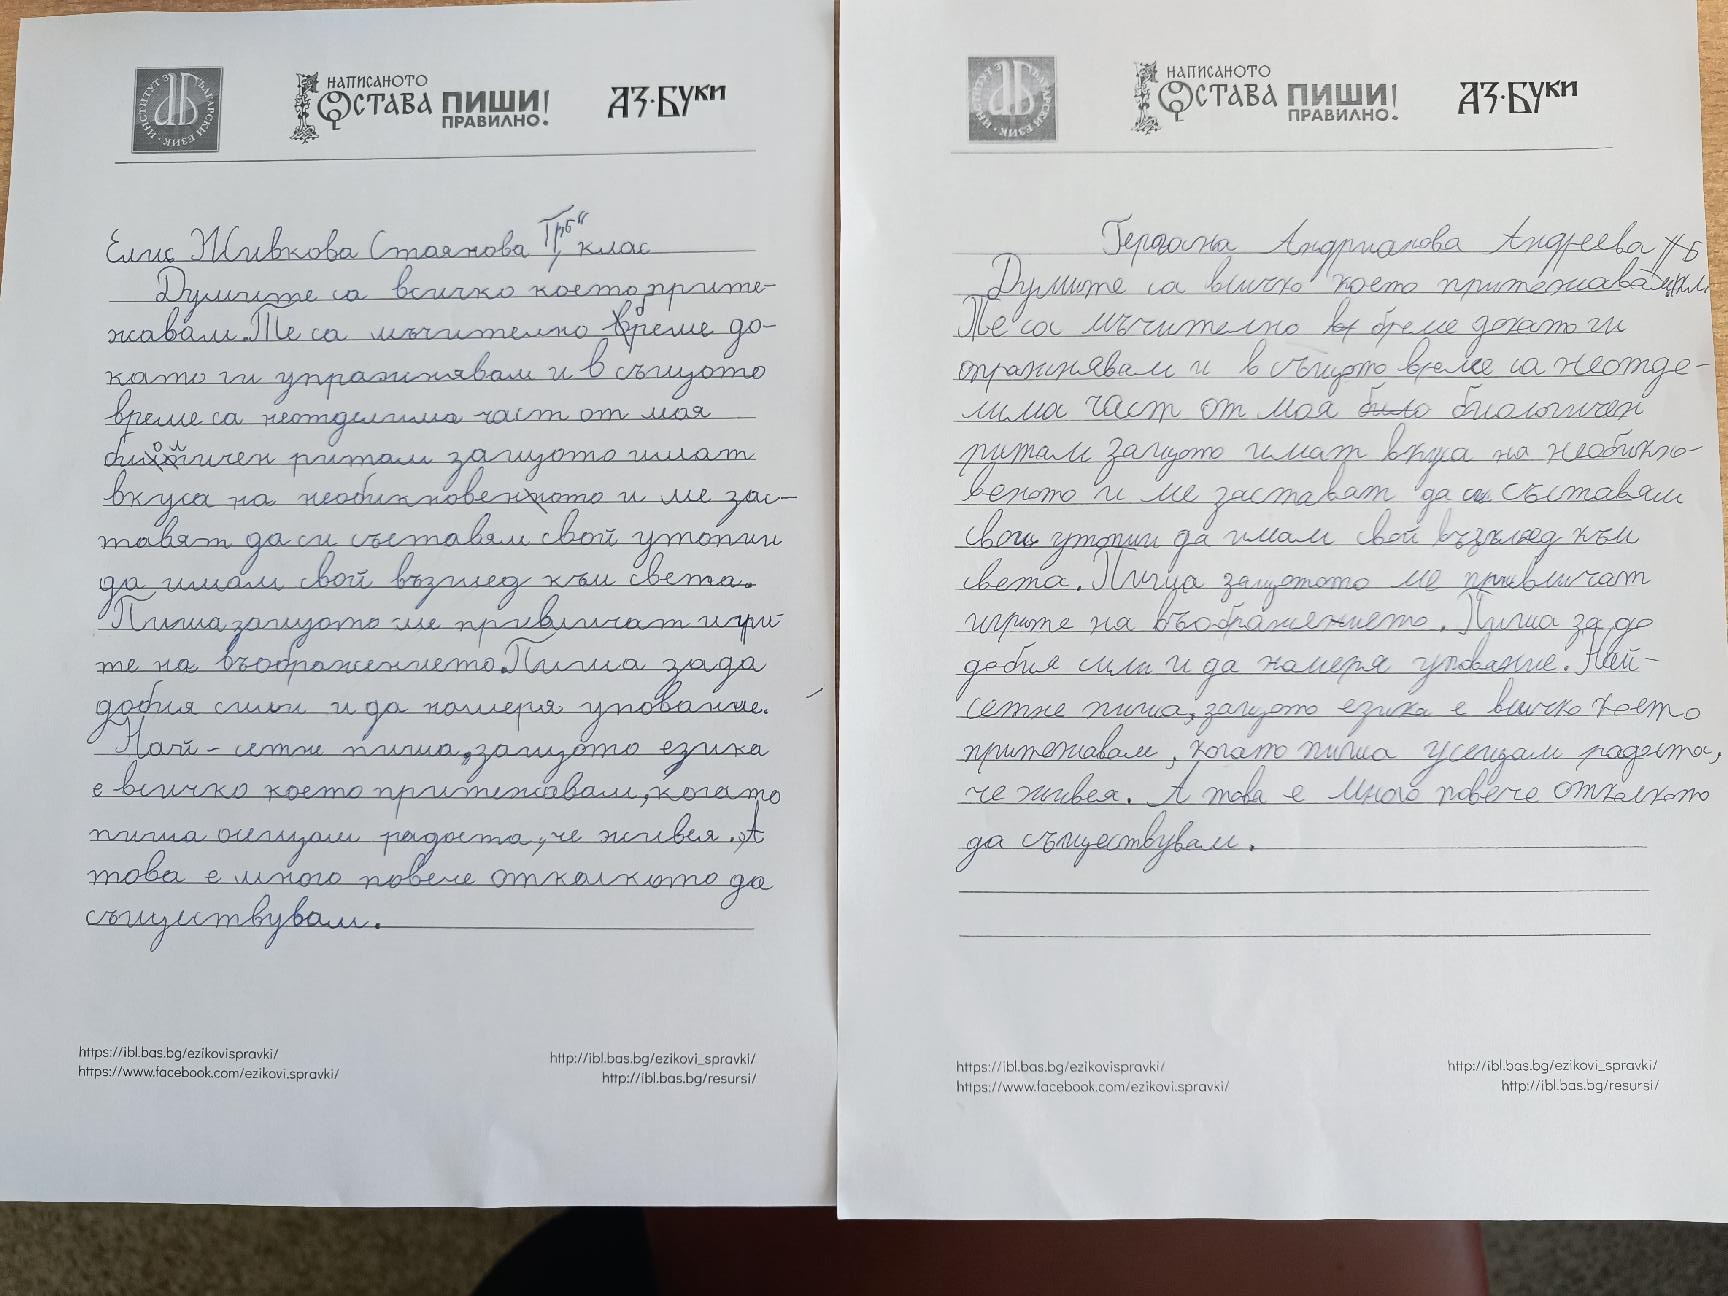 ИНСТИТУТ ЗА БЪЛГАРСКИ ЕЗИК
НАПИСАНОТО
ОСТАВА ПИШИ!
ПРАВИЛНО!
АЗ·БУКИ
Елис Живкова Стоянова клас
Думите са всичко което прите-
жавам. Те са мъчително бреме до-
като ги упражнявам и в същото
време са неотделима част от моя
ричен ритам защото имат
вкуса на необикновеното и ме зас-
тавят да си съставям свой утопии
да имам свой възглед към света.
Пиша защото ме привличат игри-
те на въображението. Пиша за да
добия сили и да намеря упование.
Най - сетне пиша, защото езика
е всичко което притежавам, когато
пиша осещам радоста, че живея. А
това е много повече отколкото да
съществувам.
https://ibl.bas.bg/ezikovispravki/
https://www.facebook.com/ezikovi.spravki/
http://ibl.bas.bg/ezikovi_spravki/
http://ibl.bas.bg/resursi/
ИНСТИТУТ ЗА БЪЛГАРСКИ ЕЗИК
НАПИСАНОТО
ОСТАВА ПИШИ!
ПРАВИЛНО!
АЗ·БУКИ
Андрианова Андреева
Думите са всичко което притежавам
Те са мъчително бреме докато ги
опражнявам и в същото време са неотде-
лима част от моя било биологичен
ритам защото имат вкуса на необикно-
веното и ме заставят да си съставям
свои утопии да имам свой възглед към
света. Пиша защотото ме привличат
игрите на въображението. Пиша за да
добия сили и да намеря упование. Най-
сетне пиша, защото езика е всичко което
притежавам, когато пиша усещам радоста,
че живея. А това е много повече отколкото
да съществувам.
https://ibl.bas.bg/ezikovispravki/
https://www.facebook.com/ezikovi.spravki/
http://ibl.bas.bg/ezikovi_spravki/
http://ibl.bas.bg/resursi/